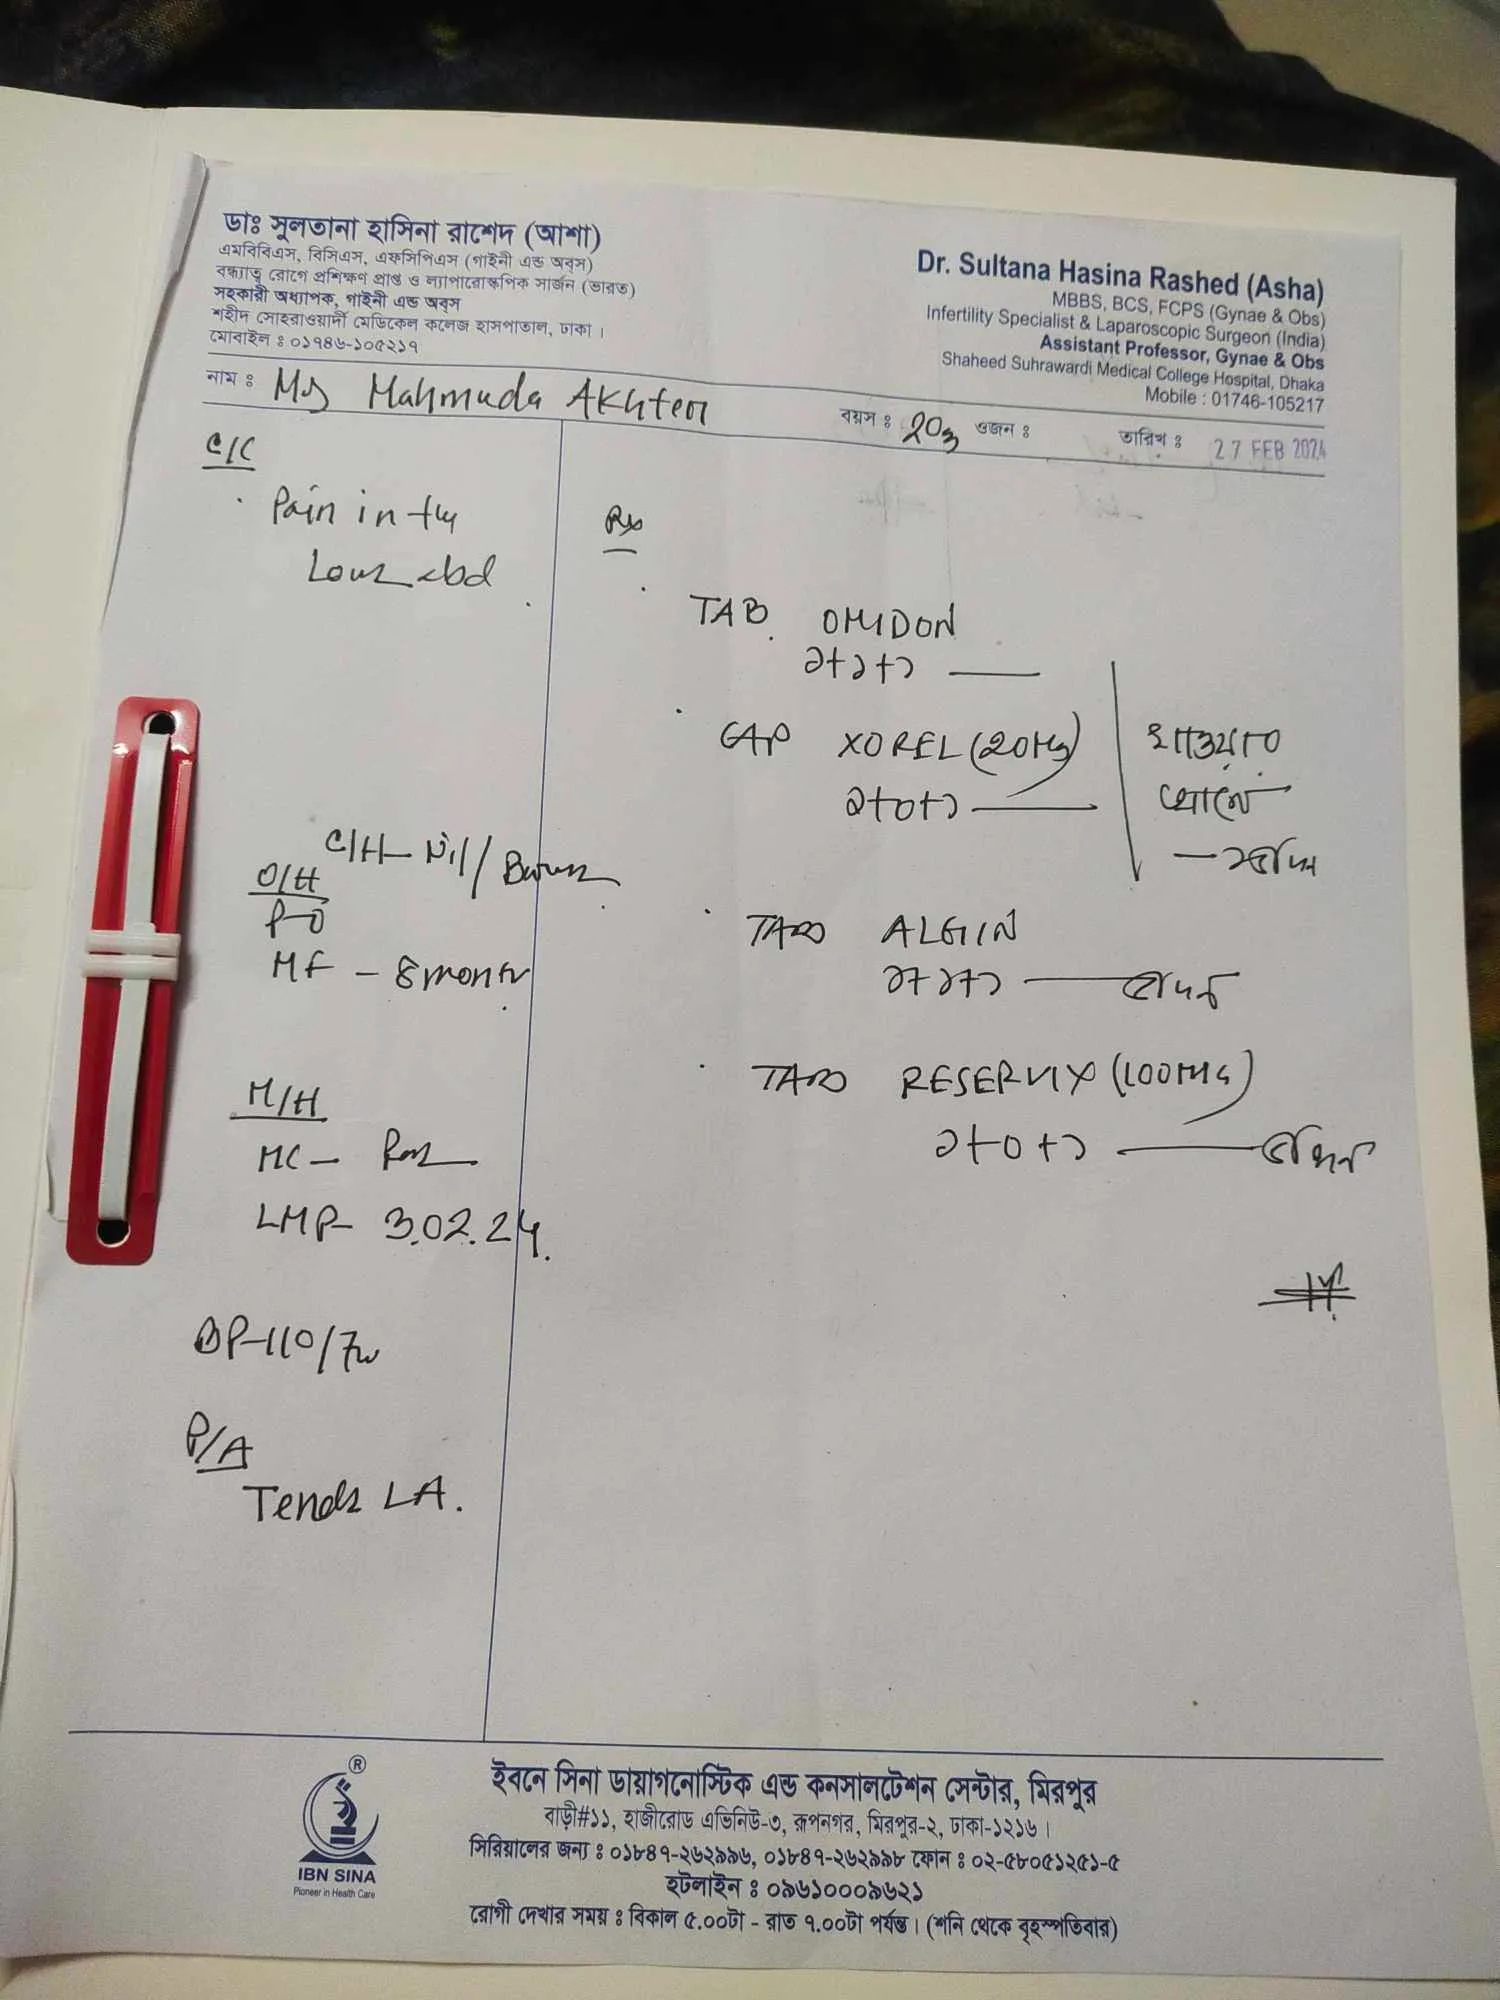 ডাঃ সুলতানা হাসিনা রাশেদ (আশা)
এমবিবিএস, বিসিএস, এফসিপিএস (গাইনী এন্ড অব্‌স)
বন্ধ্যাত্ব রোগে প্রশিক্ষণ প্রাপ্ত ও ল্যাপারোস্কপিক সার্জন (ভারত)
সহকারী অধ্যাপক, গাইনী এন্ড অব্‌স
শহীদ সোহরাওয়ার্দী মেডিকেল কলেজ হাসপাতাল, ঢাকা ।
মোবাইল ঃ ০১৭৪৬-১০৫২১৭
Dr. Sultana Hasina Rashed (Asha)
MBBS, BCS, FCPS (Gynae & Obs)
Infertility Specialist & Laparoscopic Surgeon (India)
Assistant Professor, Gynae & Obs
Shaheed Suhrawardi Medical College Hospital, Dhaka
Mobile : 01746-105217
নাম ঃ Mrs Mahmuda Akhter বয়স ঃ 20y ওজন ঃ তারিখ ঃ 27 FEB 2024
C/C
Pain in the
Lower abd
C/H- Nil/
O/H
P-0
MF - 8 month
M/H
MC - Reg
LMP- 3.02.24.
BP-110/70
P/A
Tender LA.
Rx
TAB. OMIDON
১+১+১
CAP XOREL (20Mg)
১+০+১
খাওয়ার
আগে
TAB ALGIN
১+১+১
TAB RESERVIX (100MG)
১+০+১
IBN SINA
Pioneer in Health Care
ইবনে সিনা ডায়াগনোস্টিক এন্ড কনসালটেশন সেন্টার, মিরপুর
বাড়ী#১১, হাজীরোড এভিনিউ-৩, রূপনগর, মিরপুর-২, ঢাকা-১২১৬ ।
সিরিয়ালের জন্য ঃ ০১৮৪৭-২৬২৯৯৬, ০১৮৪৭-২৬২৯৯৮ ফোন ঃ ০২-৫৮০৫১২৫১-৫
হটলাইন ঃ ০৯৬১০০০৯৬২১
রোগী দেখার সময় ঃ বিকাল ৫.০০টা - রাত ৭.০০টা পর্যন্ত । (শনি থেকে বৃহস্পতিবার)